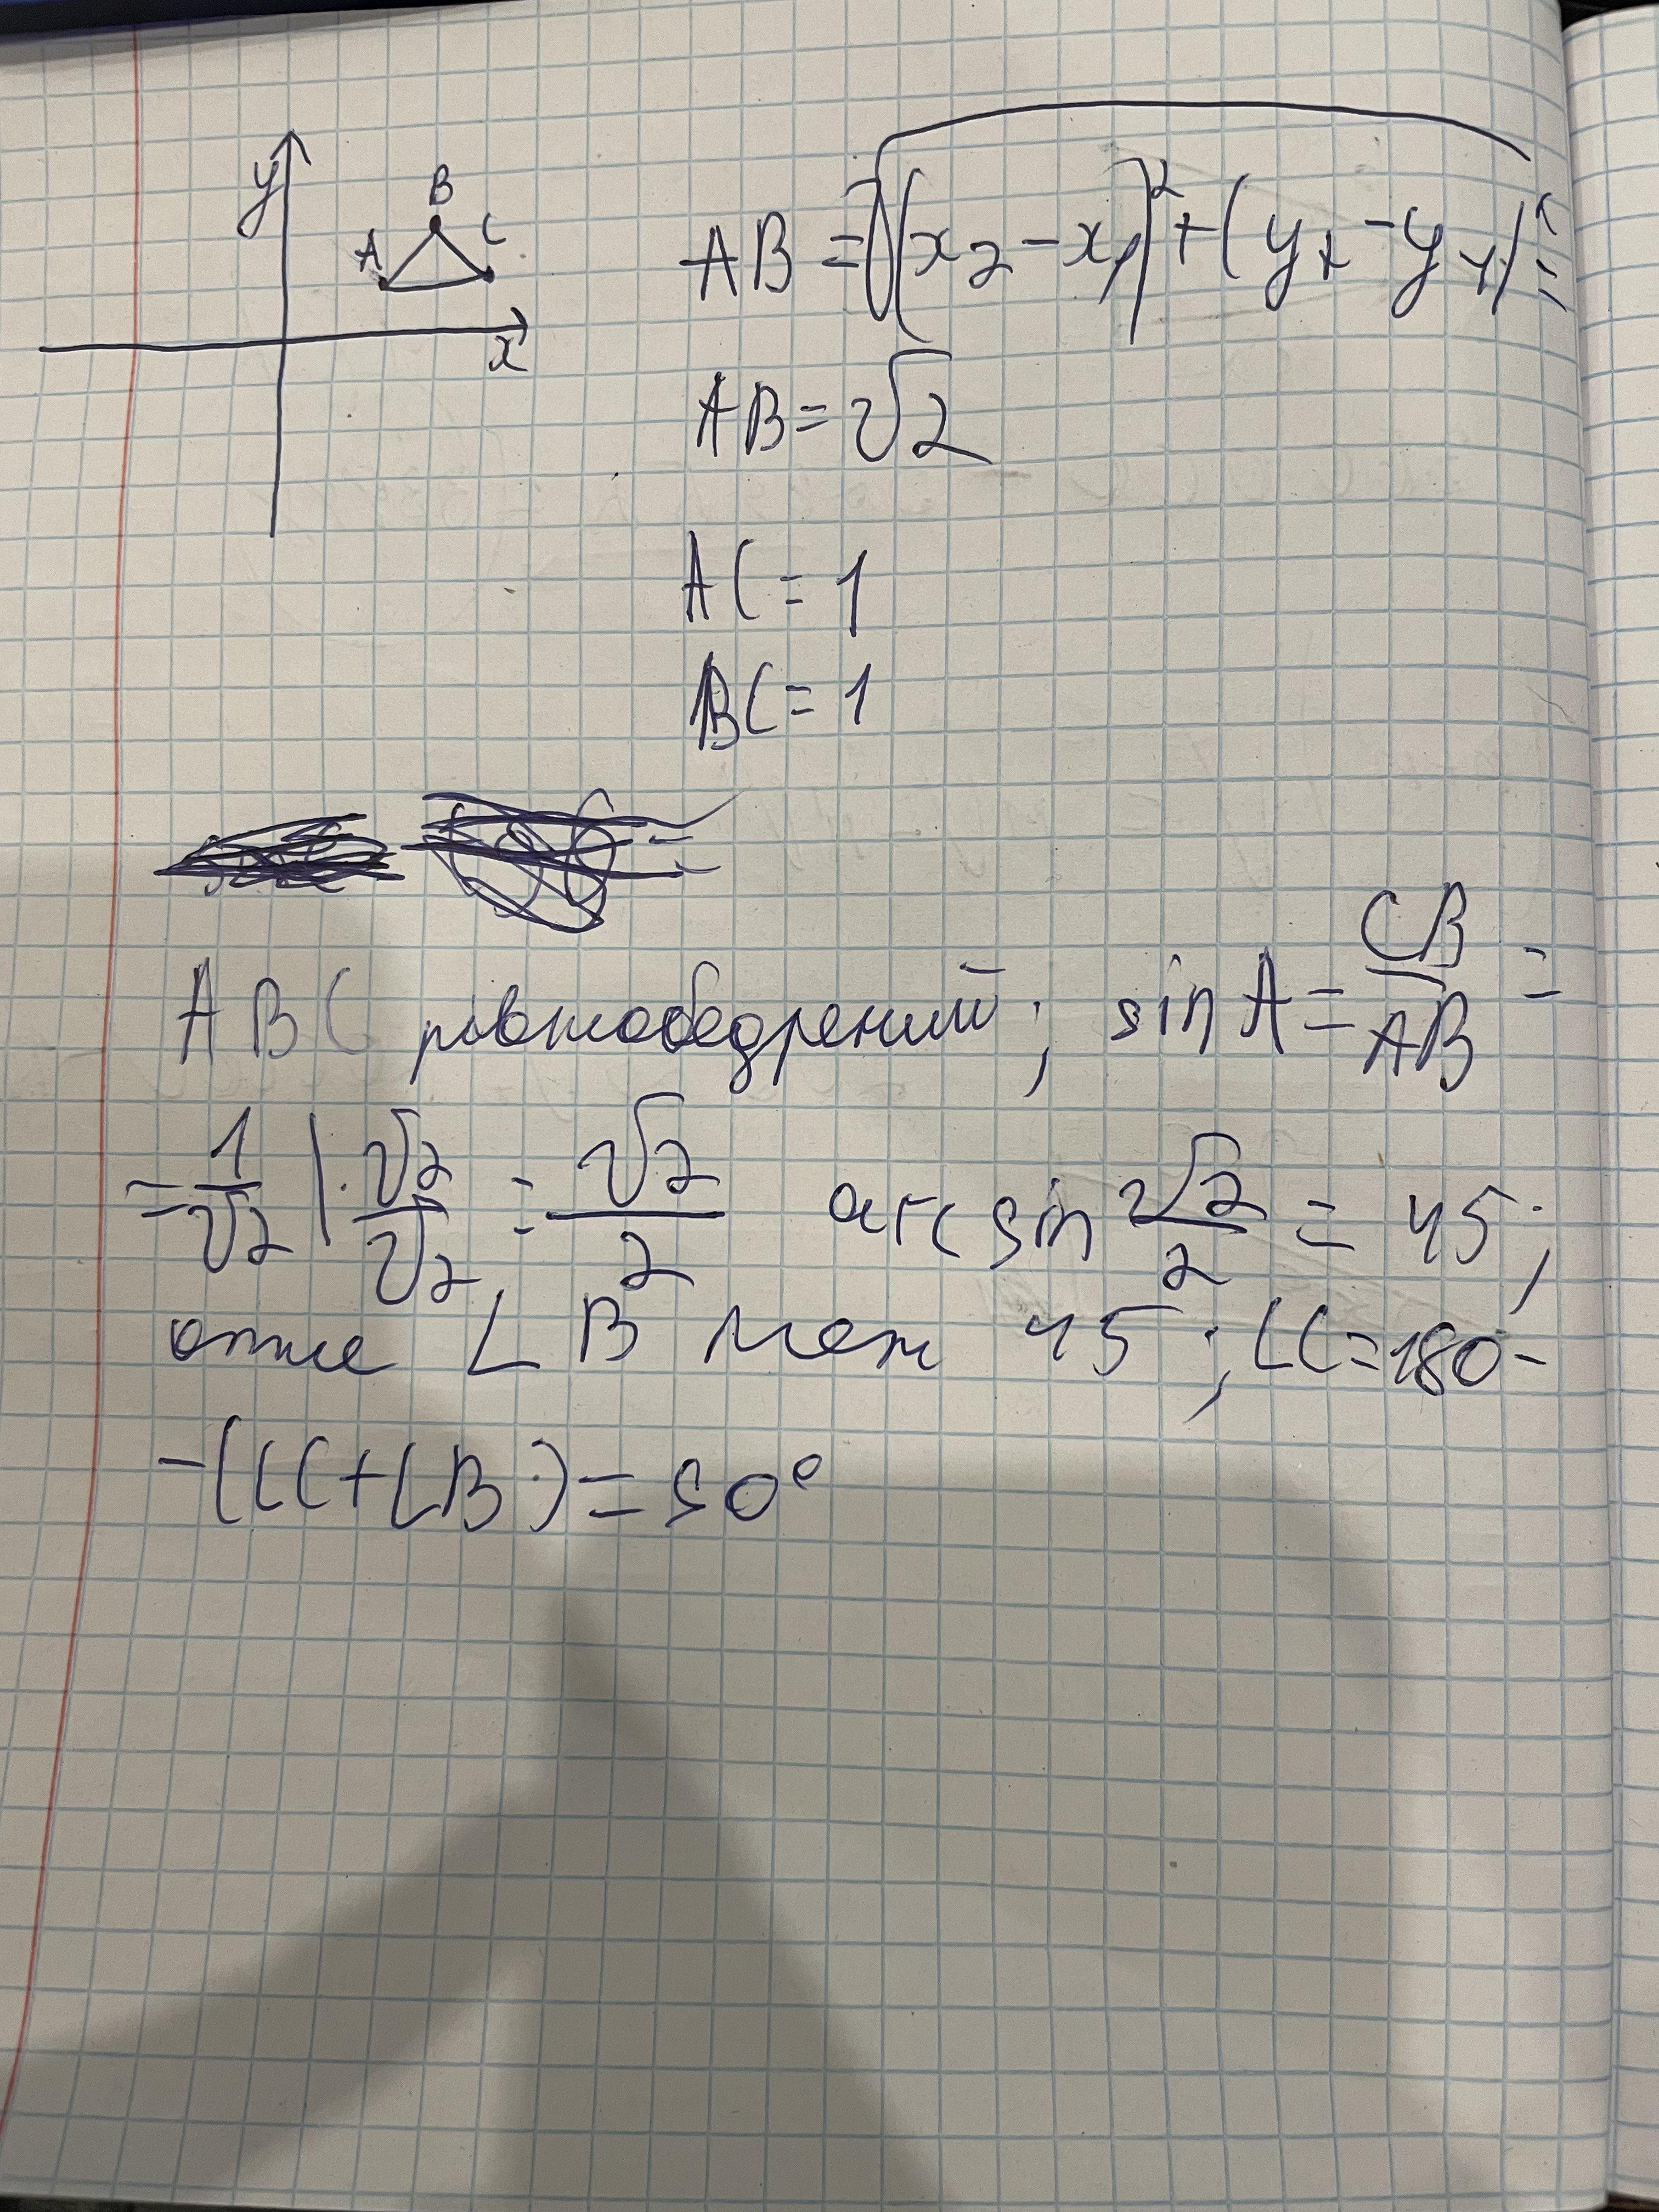 y
B
A C
x
AB = √(x₂ - x₁)² + (y₂ - y₁)² =
AB = √2
AC = 1
BC = 1
ABC рівнобедрений; sin A = CB/AB =
= 1/√2 | · √2/√2 = √2/2 arcsin √2/2 = 45;
отже ∠B теж 45; ∠C = 180 -
- (∠C + ∠B) = 90°